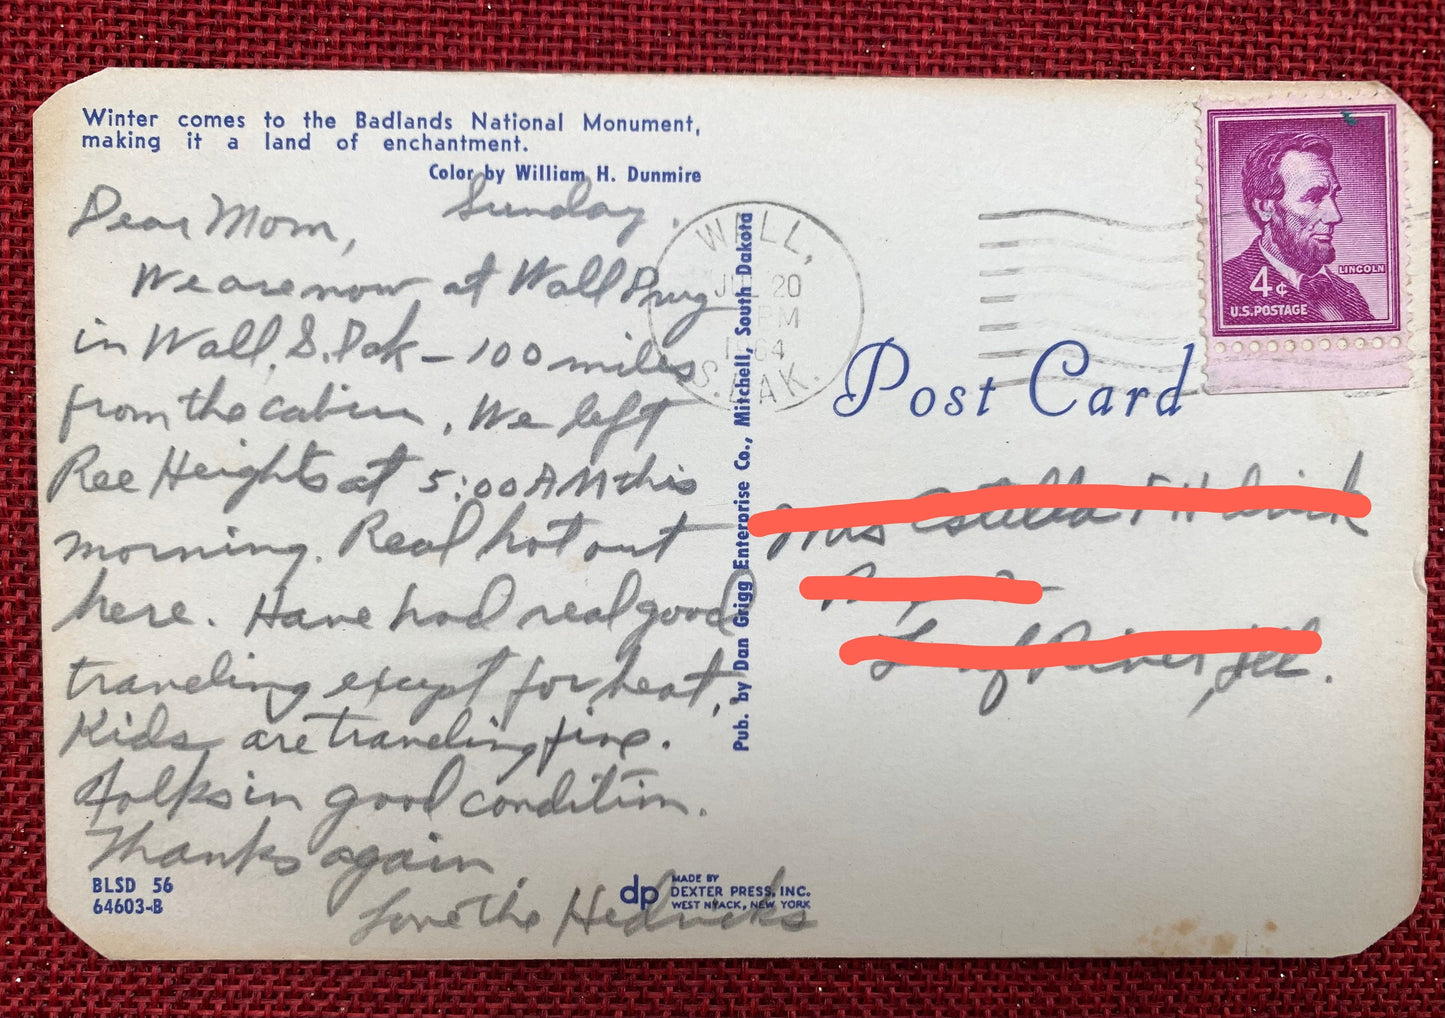 Winter comes to the Badlands National Monument,
making it a land of enchantment.
Color by William H. Dunmire
Sunday.
Dear Mom,
We are now at Wall Drug
in Wall, S. Dak - 100 miles
from the cabin. We left
Ree Heights at 5:00 AM this
morning. Real hot out
here. Have had real good
traveling except for heat.
Kids are traveling fine.
Folks in good condition.
Thanks again.
Love The Hedricks
BLSD 56
64603-B
dp
MADE BY
DEXTER PRESS, INC.
WEST NYACK, NEW YORK
Pub. by Dan Grigg Enterprise Co., Mitchell, South Dakota
WALL,
JUL 20
PM
1964
S. DAK.
LINCOLN
4¢
U.S. POSTAGE
Post Card